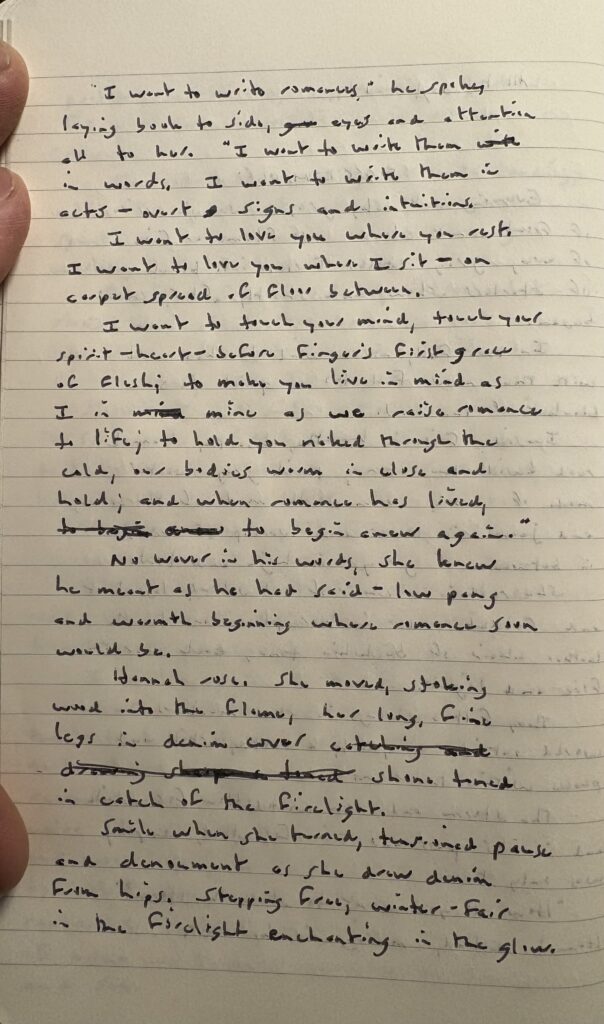 "I want to write romances," he spoke,
laying book to side, eyes and attention
all to her. "I want to write them
in words. I want to write them in
acts – overt signs and intuitions.
I want to love you where you rest.
I want to love you where I sit – on
carpet spread of floor between.
I want to touch your mind, touch your
spirit – heart – before fingers first graze
of flesh; to make you live in mind as
I in mine as we raise romance
to life; to hold you naked through the
cold, our bodies warm in close and
hold; and when romance has lived,
to begin anew again."
No waver in his words, she knew
he meant as he had said – low pang
and warmth beginning where romance soon
would be.
Hannah rose. She moved, stoking
wood into the flame, her long, fine
legs in denim cover
shone toned
in catch of the firelight.
Smile when she turned, tensioned pause
and denoument as she drew denim
from hips. Stepping free, winter-fair
in the firelight enchanting in the glow.